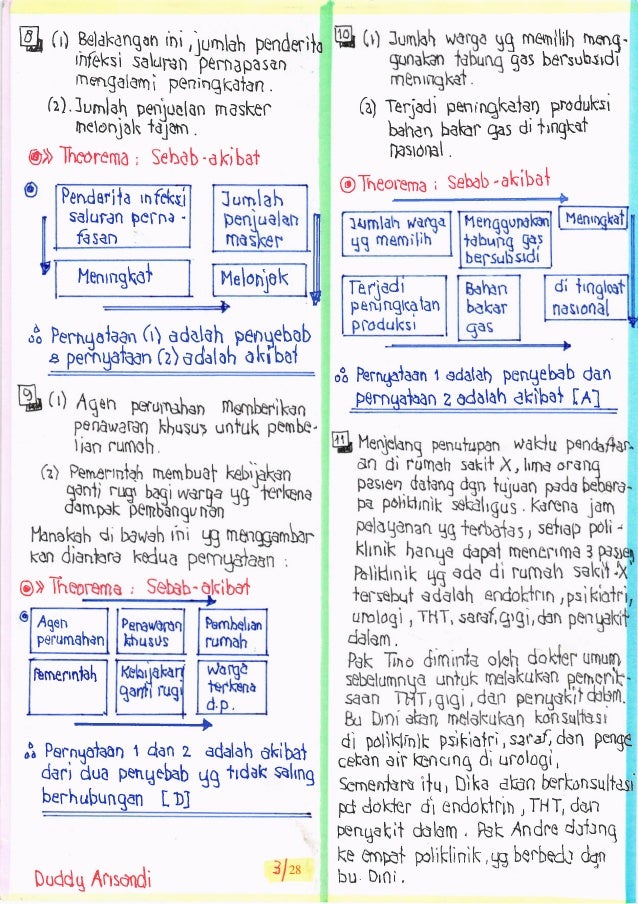 8 (1) Belakangan ini, jumlah penderita
infeksi saluran pernapasan
mengalami peningkatan.
(2). Jumlah penjualan masker
melonjak tajam.
Theorema : Sebab-akibat
Penderita infeksi
saluran perna-
fasan
Jumlah
penjualan
masker
Meningkat
Melonjak
∴ Pernyataan (1) adalah penyebab
& pernyataan (2) adalah akibat
9 (1) Agen perumahan memberikan
penawaran khusus untuk pembe-
lian rumah.
(2) Pemerintah membuat kebijakan
ganti rugi bagi warga yg terkena
dampak pembangunan
Manakah di bawah ini yg menggambar
kan diantara kedua pernyataan :
Theorema : Sebab-akibat
Agen
perumahan
Penawaran
khusus
Pembelian
rumah
Pemerintah
Kebijakan
ganti rugi
Warga
terkena
d.p.
∴ Pernyataan 1 dan 2 adalah akibat
dari dua penyebab yg tidak saling
berhubungan [D]
Duddy Arisandi
3/28
10 (1) Jumlah warga yg memilih meng-
gunakan tabung gas bersubsidi
meningkat.
(2) Terjadi peningkatan produksi
bahan bakar gas di tingkat
nasional.
Theorema : Sebab-akibat
Jumlah warga
yg memilih
Menggunakan
tabung gas
bersubsidi
Meningkat
Terjadi
peningkatan
produksi
Bahan
bakar
gas
di tingkat
nasional
∴ Pernyataan 1 adalah penyebab dan
pernyataan 2 adalah akibat [A]
11 Menjelang penutupan waktu pendaftar-
an di rumah sakit X, lima orang
pasien datang dgn tujuan pada bebera-
pa poliklinik sekaligus. Karena jam
pelayanan yg terbatas, setiap poli-
klinik hanya dapat menerima 3 pasien
Poliklinik yg ada di rumah sakit X
tersebut adalah endoktrin, psikiatri,
urologi, THT, saraf, gigi, dan penyakit
dalam.
Pak Tino diminta oleh dokter umum
sebelumnya untuk melakukan pemerik-
saan THT, gigi, dan penyakit dalam.
Bu Dini akan melakukan konsultasi
di poliklinik psikiatri, saraf, dan penge
cekan air kencing di urologi,
Sementara itu, Dika akan berkonsultasi
pd dokter di endoktrin, THT, dan
penyakit dalam. Pak Andre datang
ke empat poliklinik, yg berbeda dgn
bu Dini.